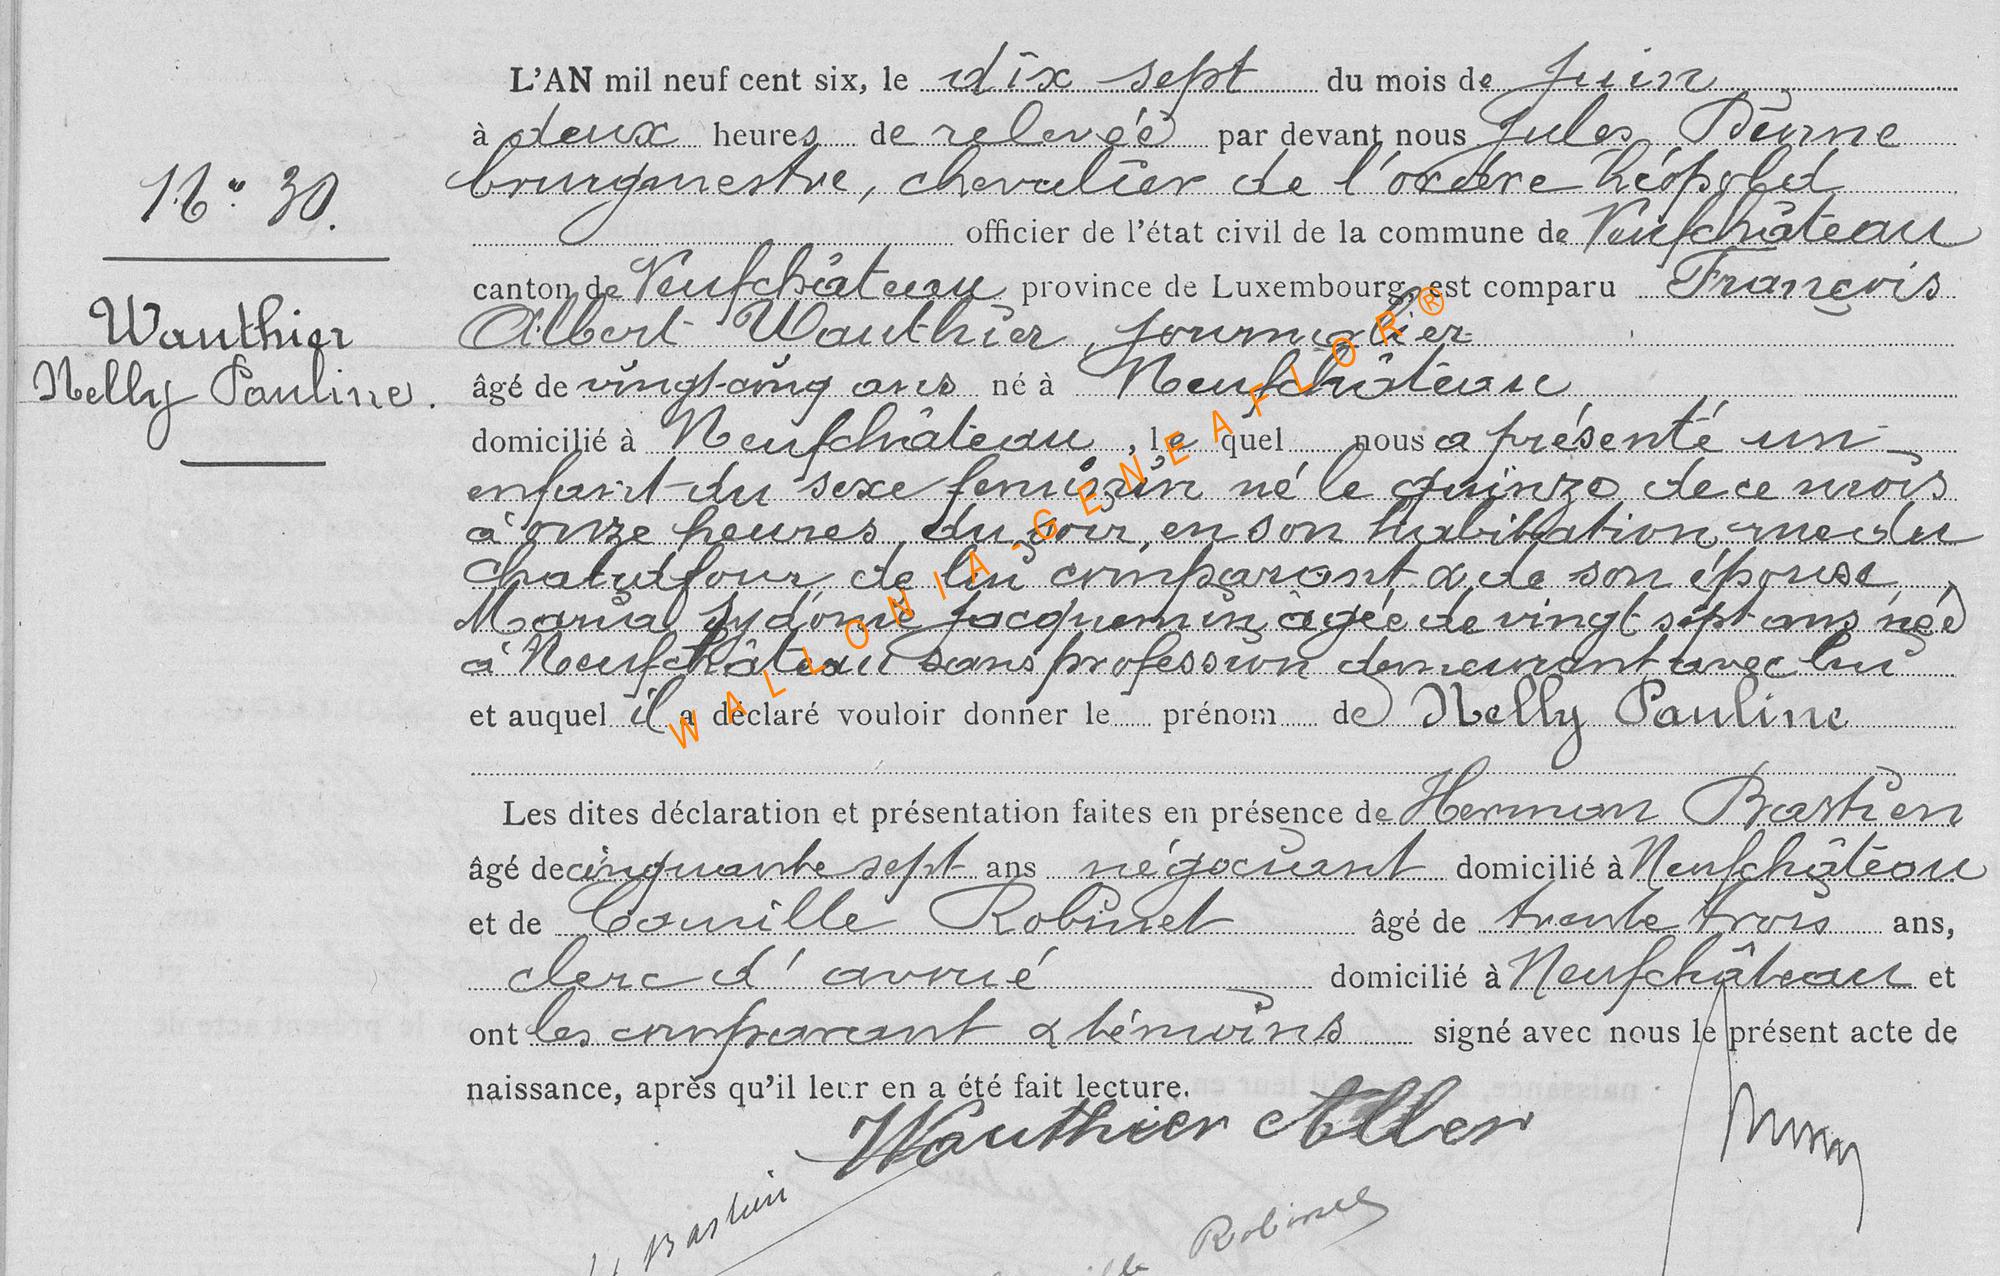 N° 30.
Wauthier
Nelly Pauline.
L'AN mil neuf cent six, le dix sept du mois de juin
à deux heures de relevée par devant nous Jules
bourgmestre, chevalier de l'ordre Léopold
officier de l'état civil de la commune de Neufchâteau
canton de Neufchâteau province de Luxembourg, est comparu François
Albert Wauthier, journalier
âgé de vingt-cinq ans né à Neufchâteau
domicilié à Neufchâteau, le quel nous a présenté un
enfant du sexe feminin né le quinze de ce mois
à onze heures du soir, en son habitation rue du
de lui comparant & de son épouse
Maria Sydonie Jacquemin âgée de vingt sept ans née
à Neufchâteau sans profession demeurant avec lui
et auquel il a déclaré vouloir donner le prénom de Nelly Pauline
Les dites déclaration et présentation faites en présence de Herman Bastien
âgé de cinquante sept ans négociant domicilié à Neufchâteau
et de Camille Robinet âgé de trente trois ans,
clerc d'avoué domicilié à Neufchâteau et
ont les comparant & témoins signé avec nous le présent acte de
naissance, après qu'il leur en a été fait lecture.
Wauthier Alber
Bastien
Robinet
WALLONIA-GENEAFLOR®